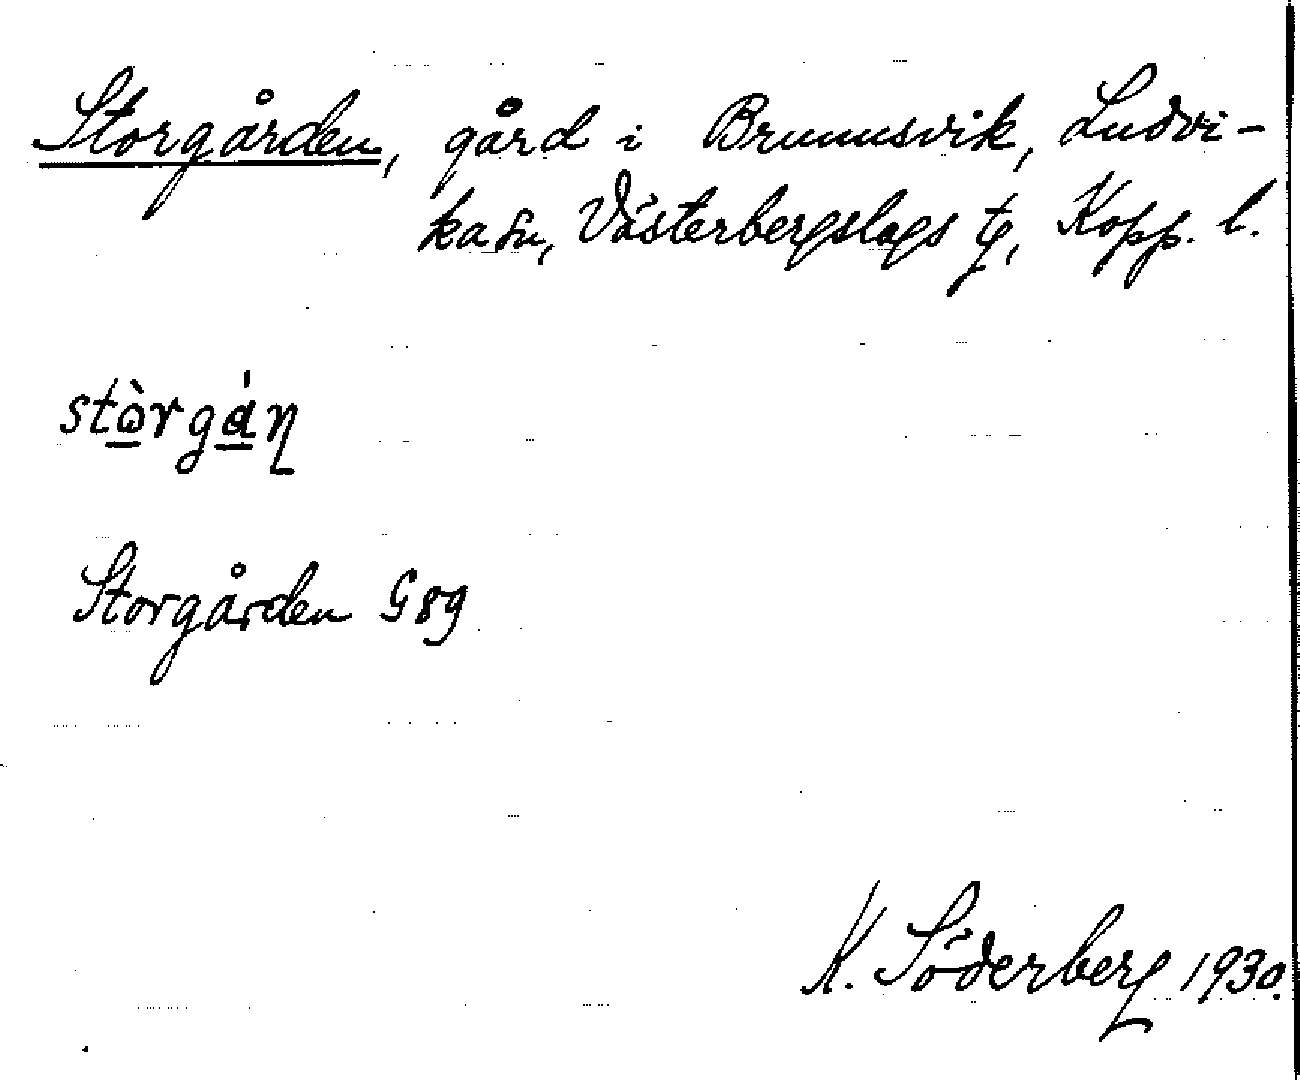 Storgården, gård i Brunnsvik, Ludvi-
ka sn, Västerbergslags tg, Kopp. l.
stòrgán
Storgården G 89
K. Söderberg 1930.